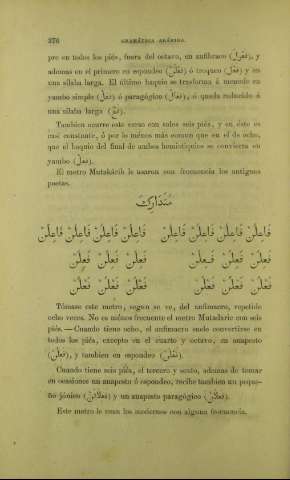 376 GRAMÁTICA ARÁBIGA.
pre en todos los piés, fuera del octavo, en anfíbraco (فَعُولُ), y
ademas en el primero en espondeo (فَعْلُنْ) ó troqueo (فَعْلُ) y en
una sílaba larga. El último baquio se trasforma á menudo en
yambo simple (فَعَلْ) ó paragógico (فَعُولْ), ó queda reducido á
una sílaba larga (فَعْ).
Tambien ocurre este verso con solos seis piés, y en éste es
casi constante, ó por lo ménos más comun que en el de ocho,
que el baquio del final de ambos hemistiquios se convierta en
yambo (فَعَلْ).
El metro Mutakárib le usaron con frecuencia los antiguos
poetas.
مُتَدَارِكٌ
فَاعِلُنْ فَاعِلُنْ فَاعِلُنْ فَاعِلُنْ فَاعِلُنْ فَاعِلُنْ فَاعِلُنْ فَاعِلُنْ
فَعِلُنْ فَعِلُنْ فَعِلُنْ فَعِلُنْ فَعِلُنْ فَعِلُنْ
فَعْلُنْ فَعْلُنْ فَعْلُنْ فَعْلُنْ فَعْلُنْ فَعْلُنْ
Tómase este metro, segun se ve, del anfímacro, repetido
ocho veces. No es ménos frecuente el metro Mutadaric con seis
piés.—Cuando tiene ocho, el anfímacro suele convertirse en
todos los piés, excepto en el cuarto y octavo, en anapesto
(فَعِلُنْ), y tambien en espondeo (فَعْلُنْ).
Cuando tiene seis piés, el tercero y sexto, ademas de tomar
en ocasiones un anapesto ó espondeo, recibe tambien un peque-
ño jónico (فَعِلَاتُنْ) y un anapesto paragógico (فَعِلَانْ).
Este metro le usan los modernos con alguna frecuencia.